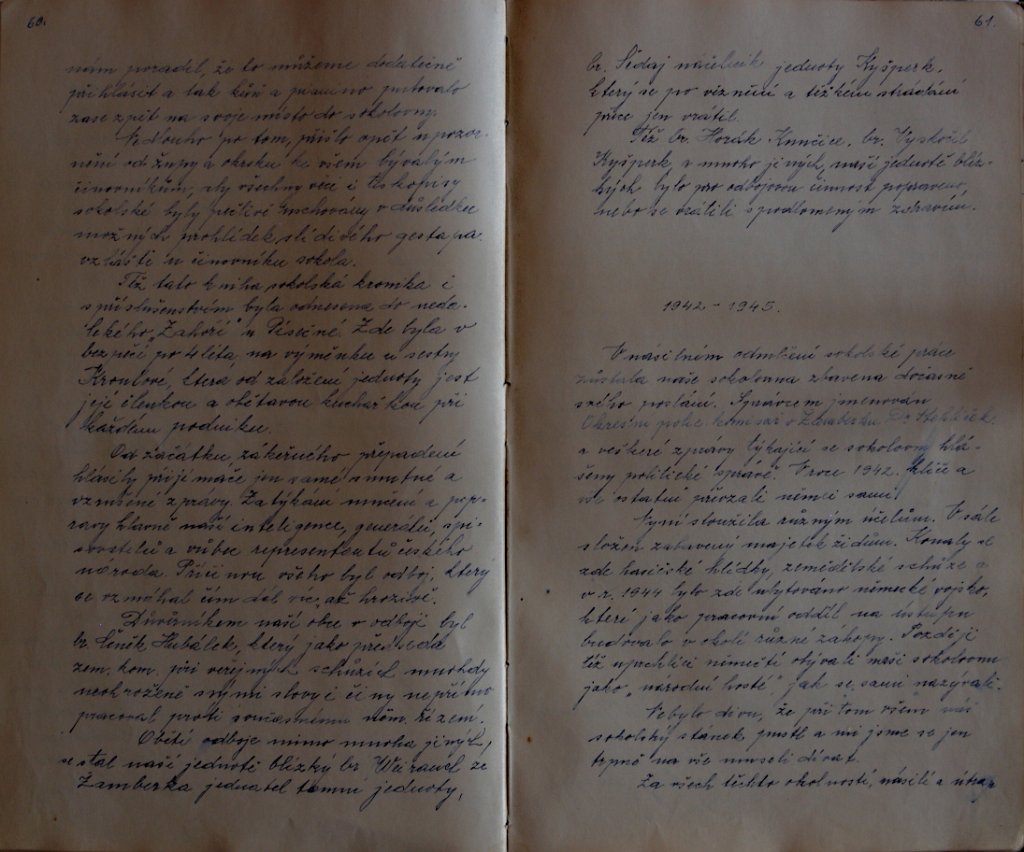 60.
nám poradil, že to můžeme dodatečně
přihlásit a tak kůň a prameno putovalo
zase zpět na svoje místo do sokolovny.
Nedlouho po tom, přišlo opět upozor-
nění od župy a okrsku ke všem bývalým
činovníkům, aby všechny věci i tiskopisy
sokolské byly pečlivě uschovány v důsledku
možných prohlídek slídivého gestapa
vzláště u činovníků sokola.
Též tato kniha sokolská kronika i
s příslušenstvím byla odnesena do neda-
lekého „Zahoří" u Písečné. Zde byla v
bezpečí po 4 léta, na výměnku u sestry
Kroulové, která od založení jednoty jest
její členkou a obětavou kuchařkou při
každém podniku.
Od začátku zákeřného přepadení
hlásily přijimače jen samé smutné a
vzrušené zprávy. Zatýkání mučení a pop-
ravy hlavně naší inteligence, generálů, spi-
sovatelů a vůbec representantů českého
národa. Příčinou všeho byl odboj, který
se vzmáhal čím dál víc, až hrozivě.
Důvěrníkem naší obce v odboji byl
br. Čeněk Hubálek, který jako předseda
zem. kom. při veřejných schůzích mnohdy
neohroženě svými slovy i činy nepřímo
pracoval proti současnému něm. řízení.
Obětí odboje mimo mnoha jiných,
se stal naší jednotě blízký br. ze
Žamberka jednatel tamní jednoty,
61.
br. náčelník jednoty Kyšperk,
který se po věznění a těžkém strádání
přece jen vrátil.
Též br. Horák Kunčice, br. Vyskočil
Kyšperk a mnoho jiných, naší jednotě blíz-
kých bylo pro odbojovou činnost popraveno,
nebo se vrátili s podlomeným zdravím.
1942 - 1945.
V násilném odmlčení sokolské práce
zůstala naše sokolovna zbavena dočasně
svého poslání. Správcem jmenován
Okresní polic. komisař v Žamberku Dr.
a veškeré zprávy týkající se sokolovny hlá-
šeny politické správě. V roce 1942. klíče a
vše ostatní převzali němci sami.
Nyní sloužila různým účelům. V sále
složen zabavený majetek židům. Konaly se
zde hasičské hlídky, zemědělské schůze a
v r. 1944 bylo zde ubytováno německé vojsko,
které jako pracovní oddíl na ústupu
budovalo v okolí různé zákopy. Později
též uprchlíci němečtí obývali naši sokolovnu
jako „národní hosté" jak se sami nazývali.
Nebylo divu, že při tom všem náš
sokolský stánek pustl a mi jsme se jen
trpně na vše museli dívat.
Za všech těchto okolností, násilí a útrap